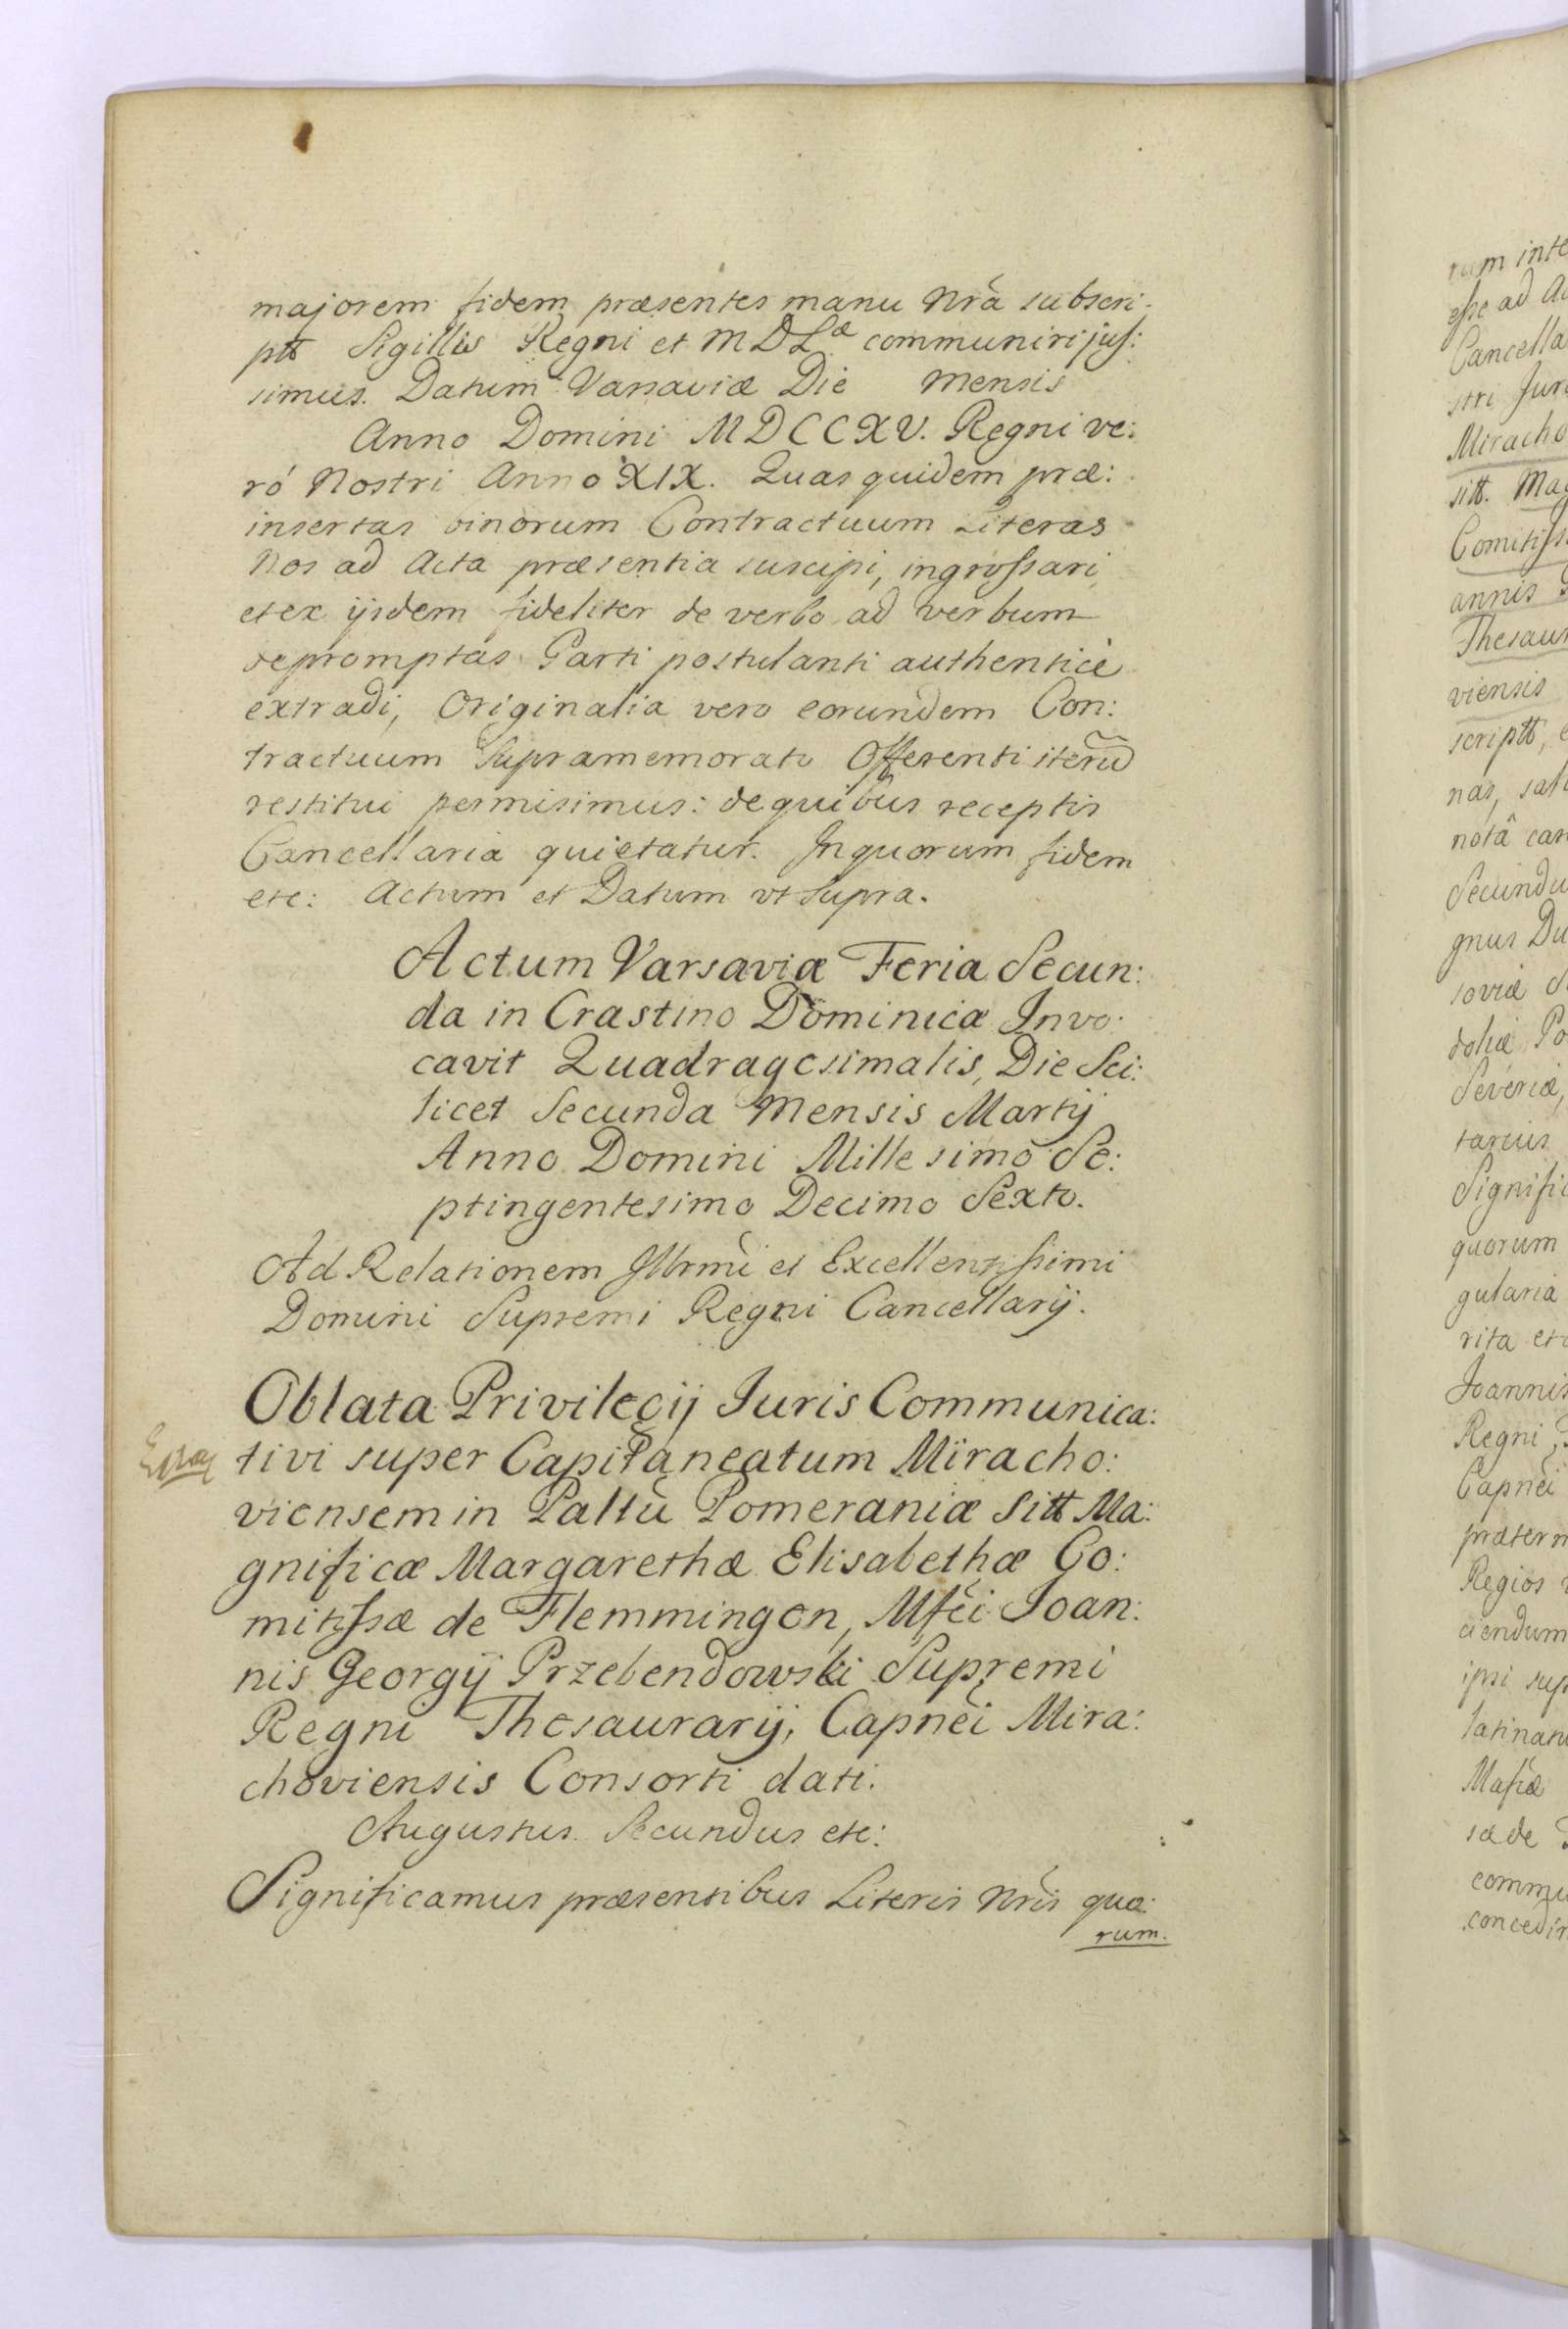 majorem fidem præsentes manu Nrã subscri:
ptt Sigillis Regni et MDLæ communiri jus:
simus. Datum Varsaviæ Die Mensis
Anno Domini MDCCXV. Regni ve:
rò Nostri Anno XIX. Quas quidem præ:
insertas binorum Contractuum Literas
Nos ad Acta præsentia suscipi, ingrossari,
et ex ijsdem fideliter de verbo ad verbum
depromptas Parti postulanti authenticè
extradi, Originalia vero eorundem Con:
tractuum supramemorato Offerenti iterũ
restitui permisimus: de quibus receptis
Cancellaria quietatur. In quorum fidem
etc: Actum et Datum vt supra.
Actum Varsaviæ Feria Secun:
da in Crastino Dominicæ Invo:
cavit Quadragesimalis, Die Sci:
licet Secunda Mensis Martij
Anno Domini Millesimo Se:
ptingentesimo Decimo Sexto.
Ad Relationem Illrmi et Excellentissimi
Domini Supremi Regni Cancellarij.
Oblata Privilegij Juris Communica:
tivi super Capitaneatum Miracho:
viensem in Palttu Pomeraniæ sitt Ma:
gnificæ Margarethæ Elisabethæ Co:
mitissæ de Flemmingen, Mfci Joan:
nis Georgij Przebendowski Supremi
Regni Thesaurarij, Capnei Mira:
choviensis Consorti dati.
Augustus Secundus etc:
Significamus præsentibus Literis Nris quo:
rum.
rum inte
esse ad A
Cancella
stri Jur
Miracho
sitt. Mag
Comitiss
annis
Thesaur
viensis
scriptt,
nas, sal
notâ can
Secundu
gnus Du
soviæ
doliæ Po
Severiæ,
Signific
quorum
gularia
rita et
Joannis
Regni
Capnei
præterm
Regios
ciendum
ipsi sup
latinatu
sæ de
commu
concedi